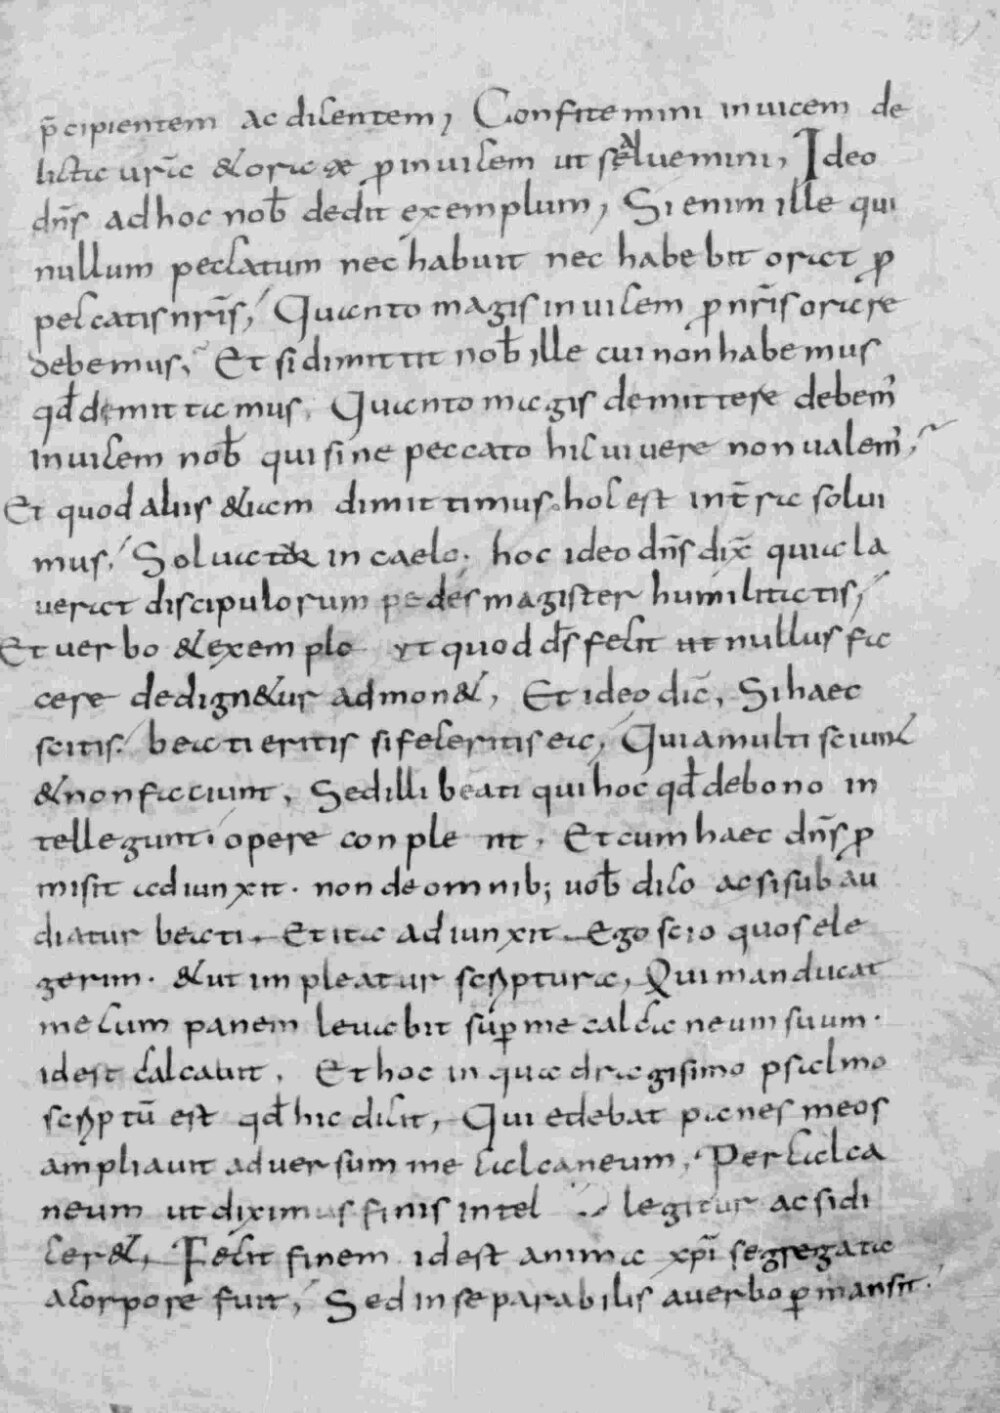 p̄cipientem ac dicentem, Confitemini inuicem de
licta urīa & orate ꝓ inuicem ut salue mini, Ideo
dn̄s ad hoc nob̄ dedit exemplum, Si enim ille qui
nullum peccatum nec habuit nec habebit orat ꝓ
peccatis nr̄is, Quanto magis inuicem ꝓ nr̄is orare
debemus, Et si dimittit nob̄ ille cui non habemus
qd̄ demittamus, Quanto magis demittere debem'
inuicem nob̄ qui sine peccato hic uiuere non ualem',
Et quod aliis &iam dimittimus hoc est in t̄ra solui
mus, Soluatur in caelo. hoc ideo dn̄s dix̄ quia la
uerat discipulorum pedes magister humilitatis,
Et uerbo & exemplo ut quod d̄s fecit ut nullus fa
cere dedign&ur admon&, Et ideo dic̄, Si haec
scitis. beati eritis si feceritis ea, Quia multi sciunt
& non faciunt, Sed illi beati qui hoc qd̄ de bono in
tellegunt opere conplent. Et cum haec dn̄s ꝓ
misit adiunxit. non de omnib; uob̄ dico ac si subau
diatur beati, Et ita adiunxit Ego scio quos ele
gerim. & ut impleatur scriptura, Qui manducat
mecum panem leuabit sup̄ me calcaneum suum.
id est calcauit, Et hoc in quadragisimo psalmo
scriptū est qd̄ hic dicit, Qui edebat panes meos
ampliauit aduersum me calcaneum, Per calca
neum ut diximus finis intel legitur ac si di
cer&, Fecit finem id est anima xp̄i segregata
a corpore fuit, Sed inseparabilis a uerbo ꝑmansit.